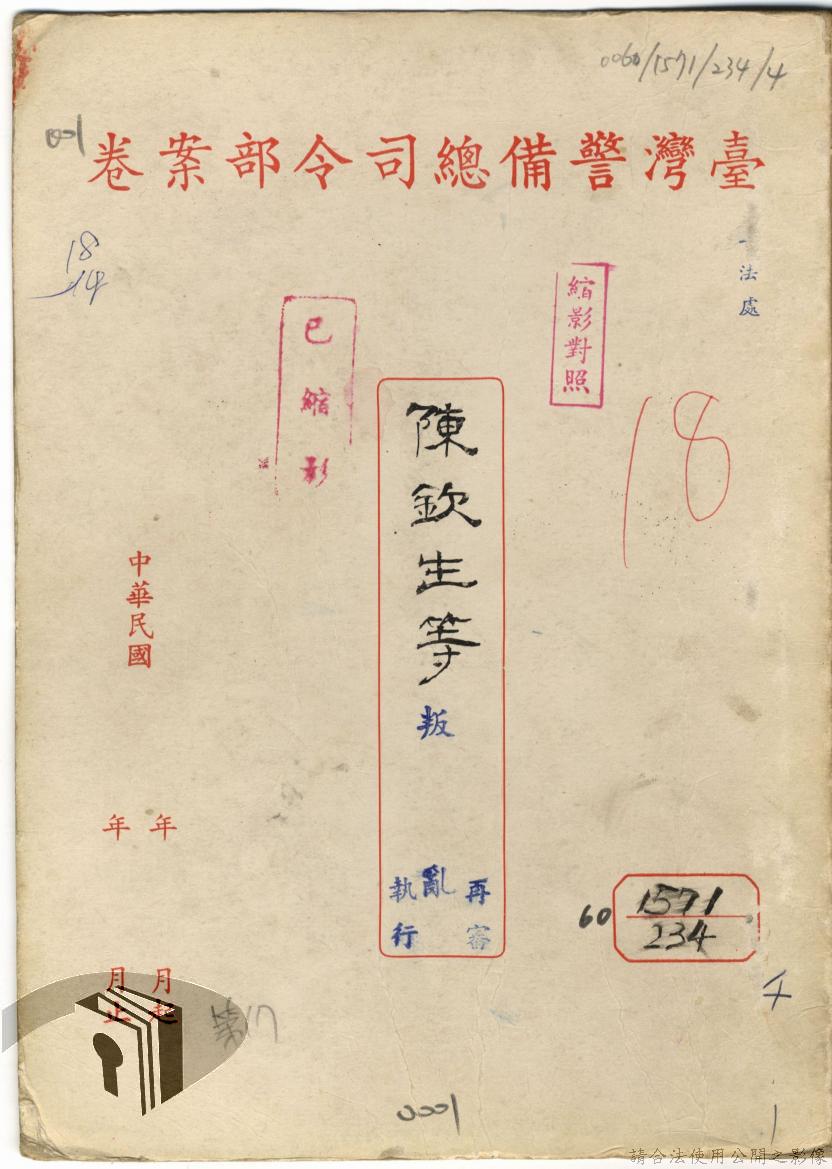 0060/1571/234/4
001
臺灣警備總司令部案卷
法處
18
14
縮影對照
已縮影
18
陳欽生等叛亂
再審
執行
中華民國
年 月起
年 月止
60
1571
234
4
第17
0001
1
請合法使用公開之影像